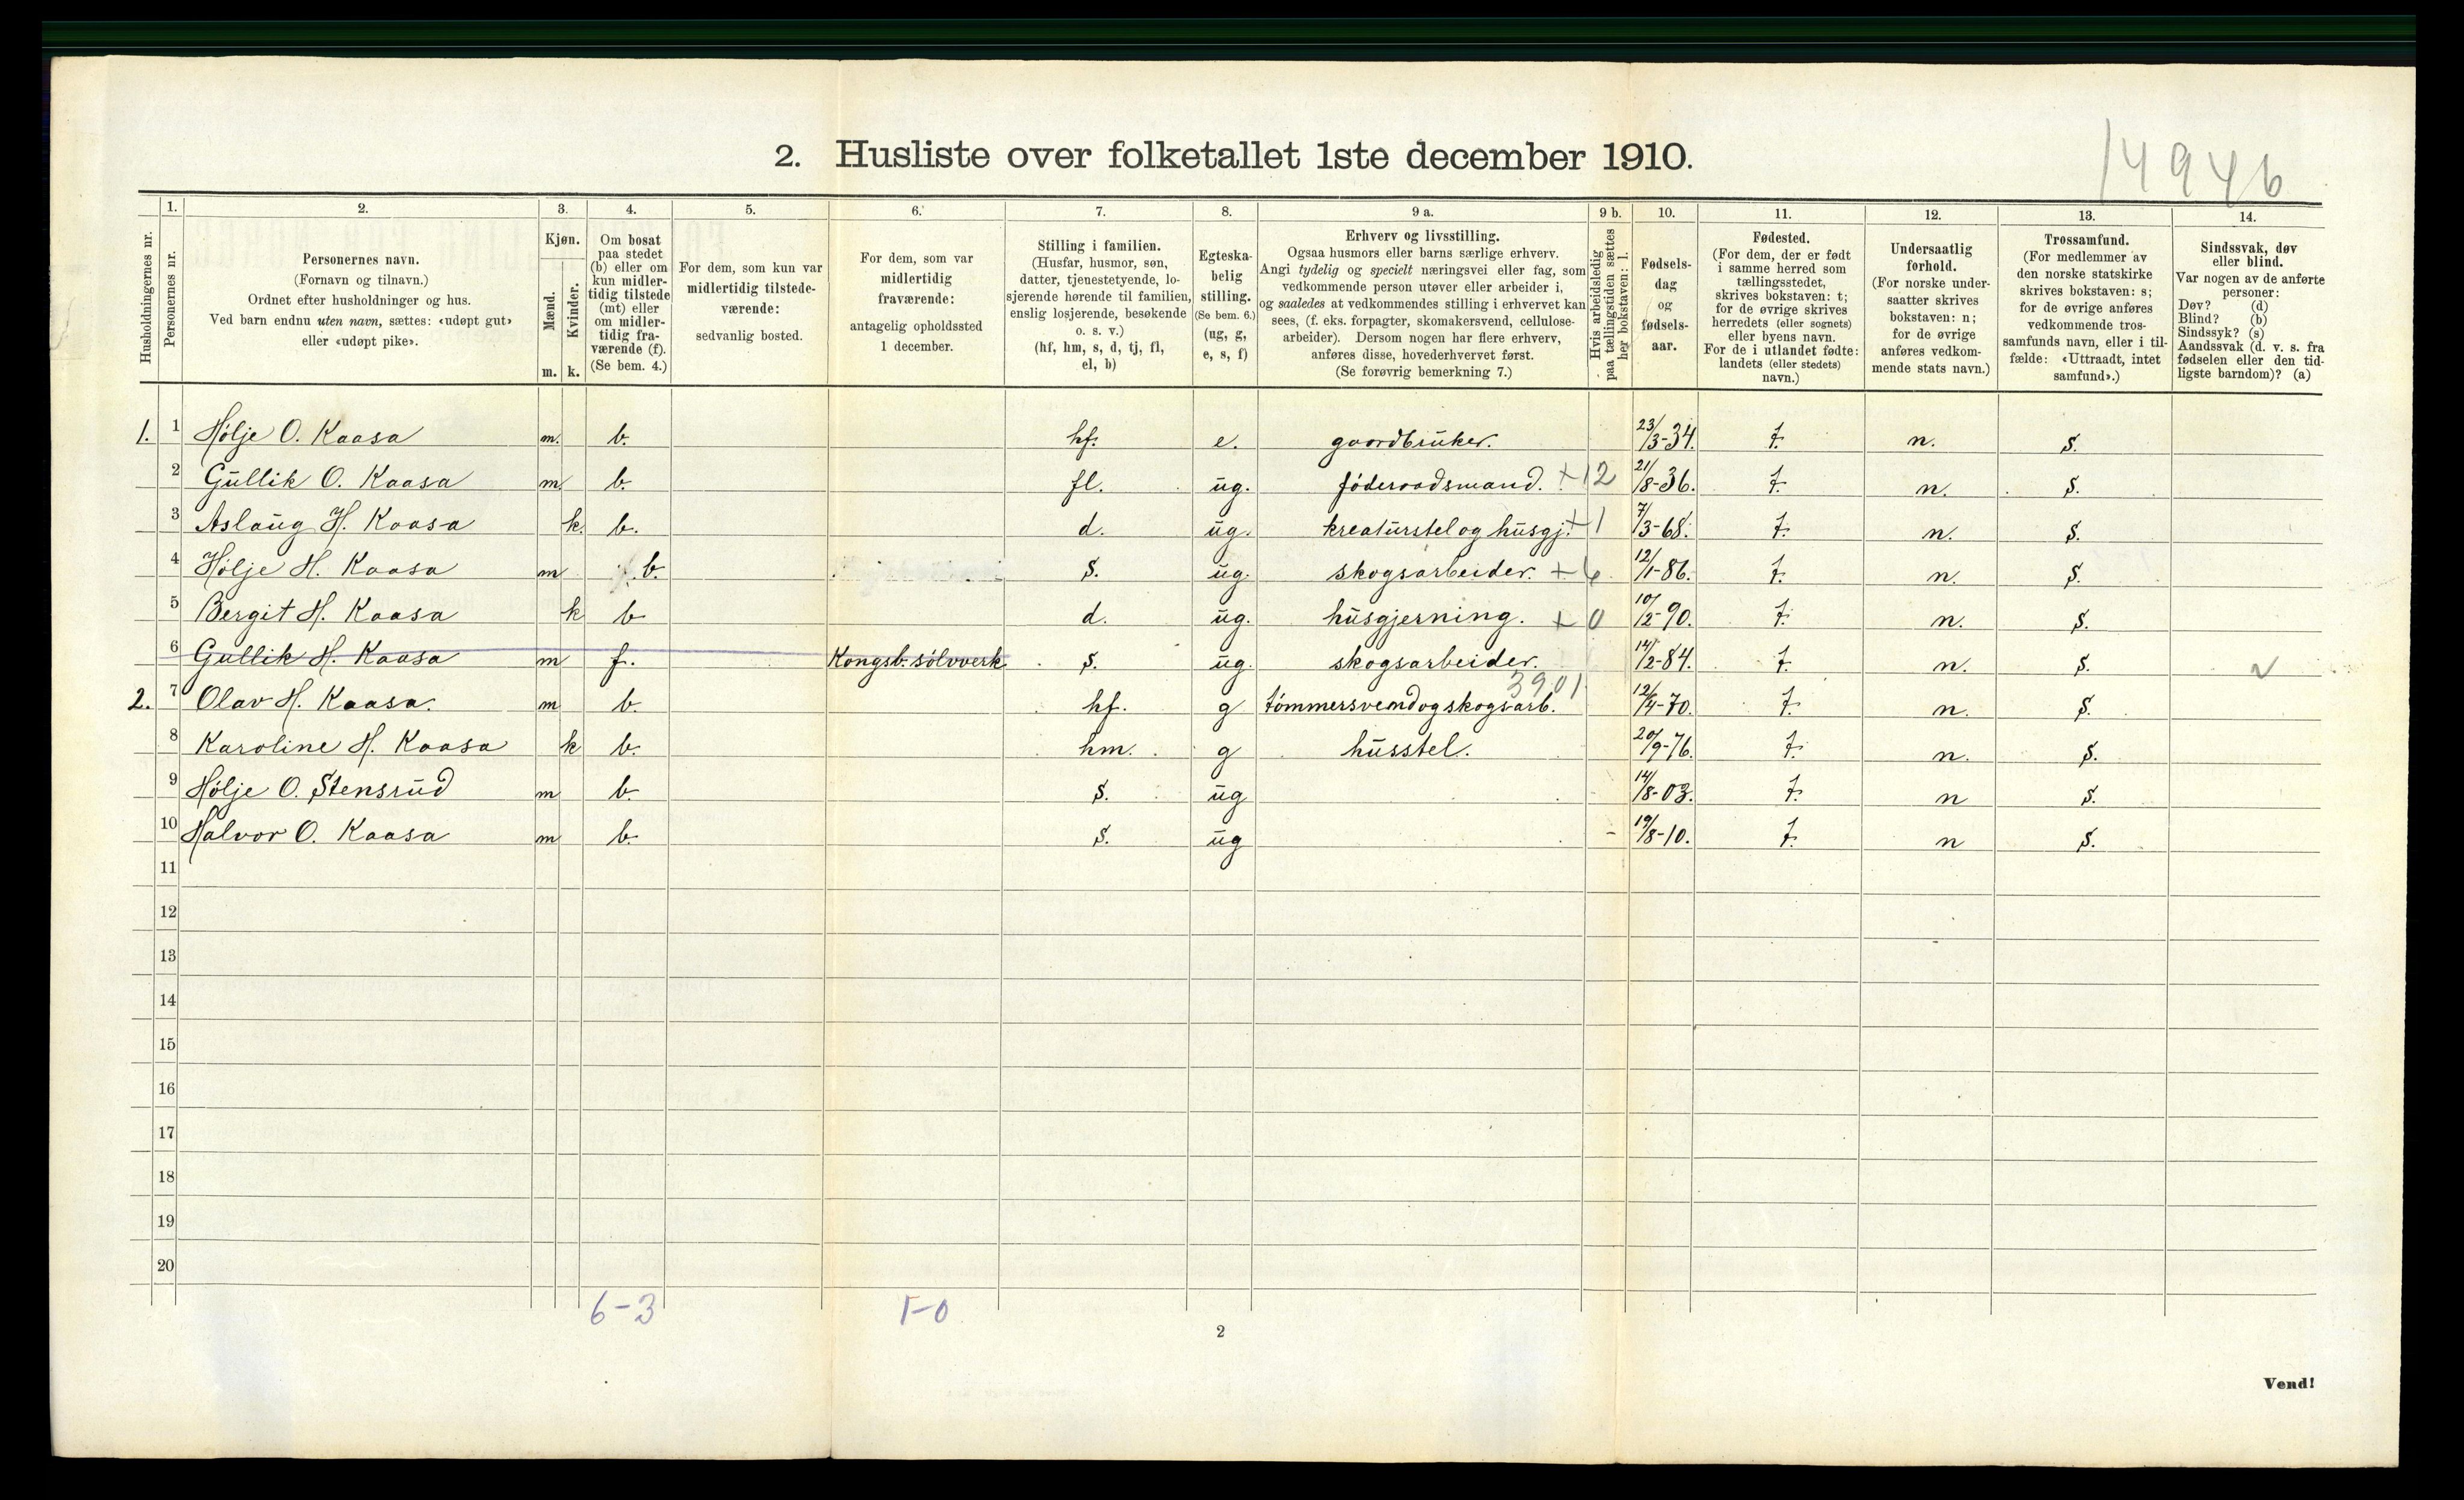 14946
2. Husliste over folketallet 1ste december 1910.
Husholdningernes nr.
1. Personernes nr.
2. Personernes navn.
(Fornavn og tilnavn.)
Ordnet efter husholdninger og hus.
Ved barn endnu uten navn, sættes: «udøpt gut»
eller «udøpt pike».
3. Kjøn.
Mænd. m.
Kvinder. k.
4. Om bosat
paa stedet
(b) eller om
kun midler-
tidig tilstede
(mt) eller
om midler-
tidig fra-
værende (f).
(Se bem. 4.)
5. For dem, som kun var
midlertidig tilstede-
værende:
sedvanlig bosted.
6. For dem, som var
midlertidig
fraværende:
antagelig opholdssted
1 december.
7. Stilling i familien.
(Husfar, husmor, søn,
datter, tjenestetyende, lo-
sjerende hørende til familien,
enslig losjerende, besøkende
o. s. v.)
(hf, hm, s, d, tj, fl,
el, b)
8. Egteska-
belig
stilling.
(Se bem. 6.)
(ug, g,
e, s, f)
9 a. Erhverv og livsstilling.
Ogsaa husmors eller barns særlige erhverv.
Angi tydelig og specielt næringsvei eller fag, som
vedkommende person utøver eller arbeider i,
og saaledes at vedkommendes stilling i erhvervet kan
sees, (f. eks. forpagter, skomakersvend, cellulose-
arbeider). Dersom nogen har flere erhverv,
anføres disse, hovederhvervet først.
(Se forøvrig bemerkning 7.)
9 b. Hvis arbeidsledig
paa tællingstiden sættes
her bokstaven: l.
10. Fødsels-
dag
og
fødsels-
aar.
11. Fødested.
(For dem, der er født
i samme herred som
tællingsstedet,
skrives bokstaven: t;
for de øvrige skrives
herredets (eller sognets)
eller byens navn.
For de i utlandet fødte:
landets (eller stedets)
navn.)
12. Undersaatlig
forhold.
(For norske under-
saatter skrives
bokstaven: n;
for de øvrige
anføres vedkom-
mende stats navn.)
13. Trossamfund.
(For medlemmer av
den norske statskirke
skrives bokstaven: s;
for de øvrige anføres
vedkommende tros-
samfunds navn, eller i til-
fælde: «Uttraadt, intet
samfund».)
14. Sindssvak, døv
eller blind.
Var nogen av de anførte
personer:
Døv? (d)
Blind? (b)
Sindssyk? (s)
Aandssvak (d. v. s. fra
fødselen eller den tid-
ligste barndom)? (a)
1. 1 Hølje O. Kaasa m. b. hf. e. gaardbruker. 23/3-34. t. n. s.
2 Gullik O. Kaasa m. b. fl. ug. føderaadsmand. +12 21/8-36. t. n. s.
3 Aslaug H. Kaasa k. b. d. ug. kreaturstel og husgj. +1 7/3-68. t. n. s.
4 Hølje H. Kaasa m b. s. ug. skogsarbeider. +6 12/1-86. t. n. s.
5 Bergit H. Kaasa k b d. ug. husgjerning. +0 10/2-90. t. n. s.
6 Gullik H. Kaasa m f. Kongsb. sølvverk s. ug. skogsarbeider. 14/2-84. t. n. s.
3901
2. 7 Olav H. Kaasa. m b. hf. g tømmersvend og skogsarb. 12/4-70. t. n. s.
8 Karoline H. Kaasa k b. hm. g husstel. 20/9-76. t. n. s.
9 Hølje O. Stensrud m b. s. ug 14/8-03. t. n s.
10 Halvor O. Kaasa m b. s. ug - 19/8-10. t. n s.
11
12
13
14
15
16
17
18
19
20
6-3 1-0
2
Vend!